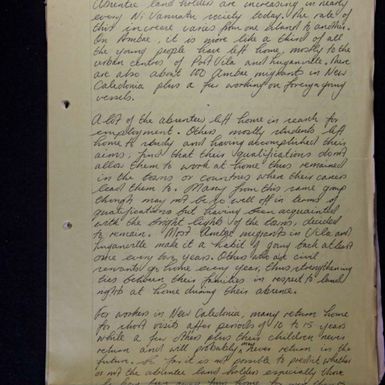 Absentee land holders are increasing in nearly
every Ni-Vanuatu society today. The rate of
this increase varies from one island to another.
On Ambae, it is more like a third of all
the young people have left home, mostly to the
urban centres of Port Vila and Luganville. There
are also about 100 Ambae migrants in New
Caledonia plus a few working on foreign
vessels.
A lot of the absentees left home in search for
employment. Others, mostly students left
home to study and having accomplished their
aims, find that their qualifications don't
allow them to work at home thus remained
in the towns or countries when their careers
lead them to. Many from this same group
though may not be so well off in terms of
qualifications but having been acquainted
with the bright lights of the towns, decided
to remain. Most Ambae migrants in Vila and
Luganville make it a habit of going back at least
once every two years. Others who are civil
servants go home every year, thus strengthening
ties between their families in respect to land
rights at home during their absence.
For workers in New Caledonia, many return home
for short visits after periods of 10 to 15 years
while a few others plus their children never
return and will probably never return in the
future. So far it is not possible to predict whether
or not the absentee land holders especially those